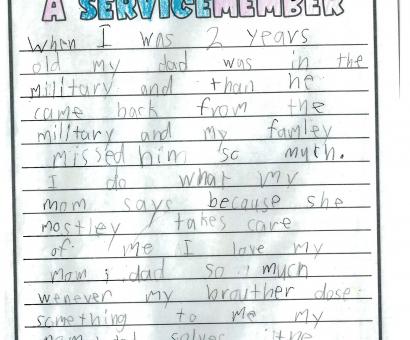 A SERVICEMEMBER
When I was 2 years
old my dad was in the
military and than he
came back from the
military and my famley
missed him so much.
I do what my
mom says because she
mostley takes care
of me I love my
mom i dad so much
wenever my brouther dose
something to me my
solves